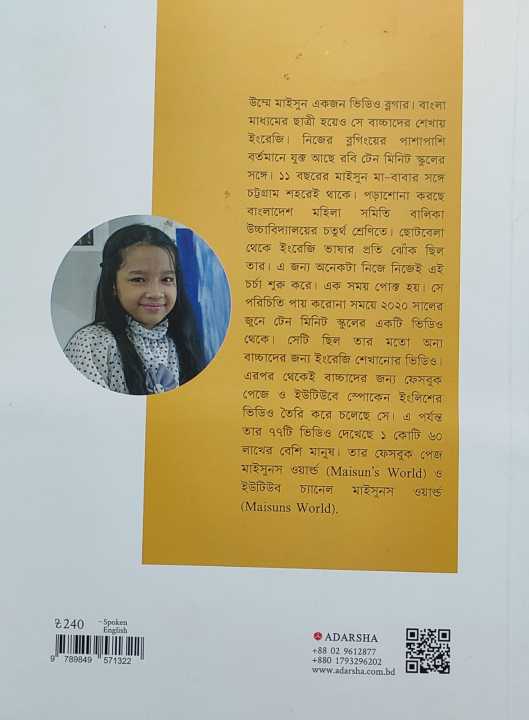 উম্মে মাইসুন একজন ভিডিও ব্লগার। বাংলা
মাধ্যমের ছাত্রী হয়েও সে বাচ্চাদের শেখায়
ইংরেজি। নিজের ব্লগিংয়ের পাশাপাশি
বর্তমানে যুক্ত আছে রবি টেন মিনিট স্কুলের
সঙ্গে। ১১ বছরের মাইসুন মা-বাবার সঙ্গে
চট্টগ্রাম শহরেই থাকে। পড়াশোনা করছে
বাংলাদেশ মহিলা সমিতি বালিকা
উচ্চাবিদ্যালয়ের চতুর্থ শ্রেণিতে। ছোটবেলা
থেকে ইংরেজি ভাষার প্রতি ঝোঁক ছিল
তার। এ জন্য অনেকটা নিজে নিজেই এই
চর্চা শুরু করে। এক সময় পোক্ত হয়। সে
পরিচিতি পায় করোনা সময়ে ২০২০ সালের
জুনে টেন মিনিট স্কুলের একটি ভিডিও
থেকে। সেটি ছিল তার মতো অন্য
বাচ্চাদের জন্য ইংরেজি শেখানোর ভিডিও।
এরপর থেকেই বাচ্চাদের জন্য ফেসবুক
পেজে ও ইউটিউবে স্পোকেন ইংলিশের
ভিডিও তৈরি করে চলেছে সে। এ পর্যন্ত
তার ৭৭টি ভিডিও দেখেছে ১ কোটি ৬০
লাখের বেশি মানুষ। তার ফেসবুক পেজ
মাইসুনস ওয়ার্ল্ড (Maisun's World) ও
ইউটিউব চ্যানেল মাইসুনস ওয়ার্ল্ড
(Maisuns World).
৳240
~Spoken
English
9 789849 571322
ADARSHA
+88 02 9612877
+880 1793296202
www.adarsha.com.bd